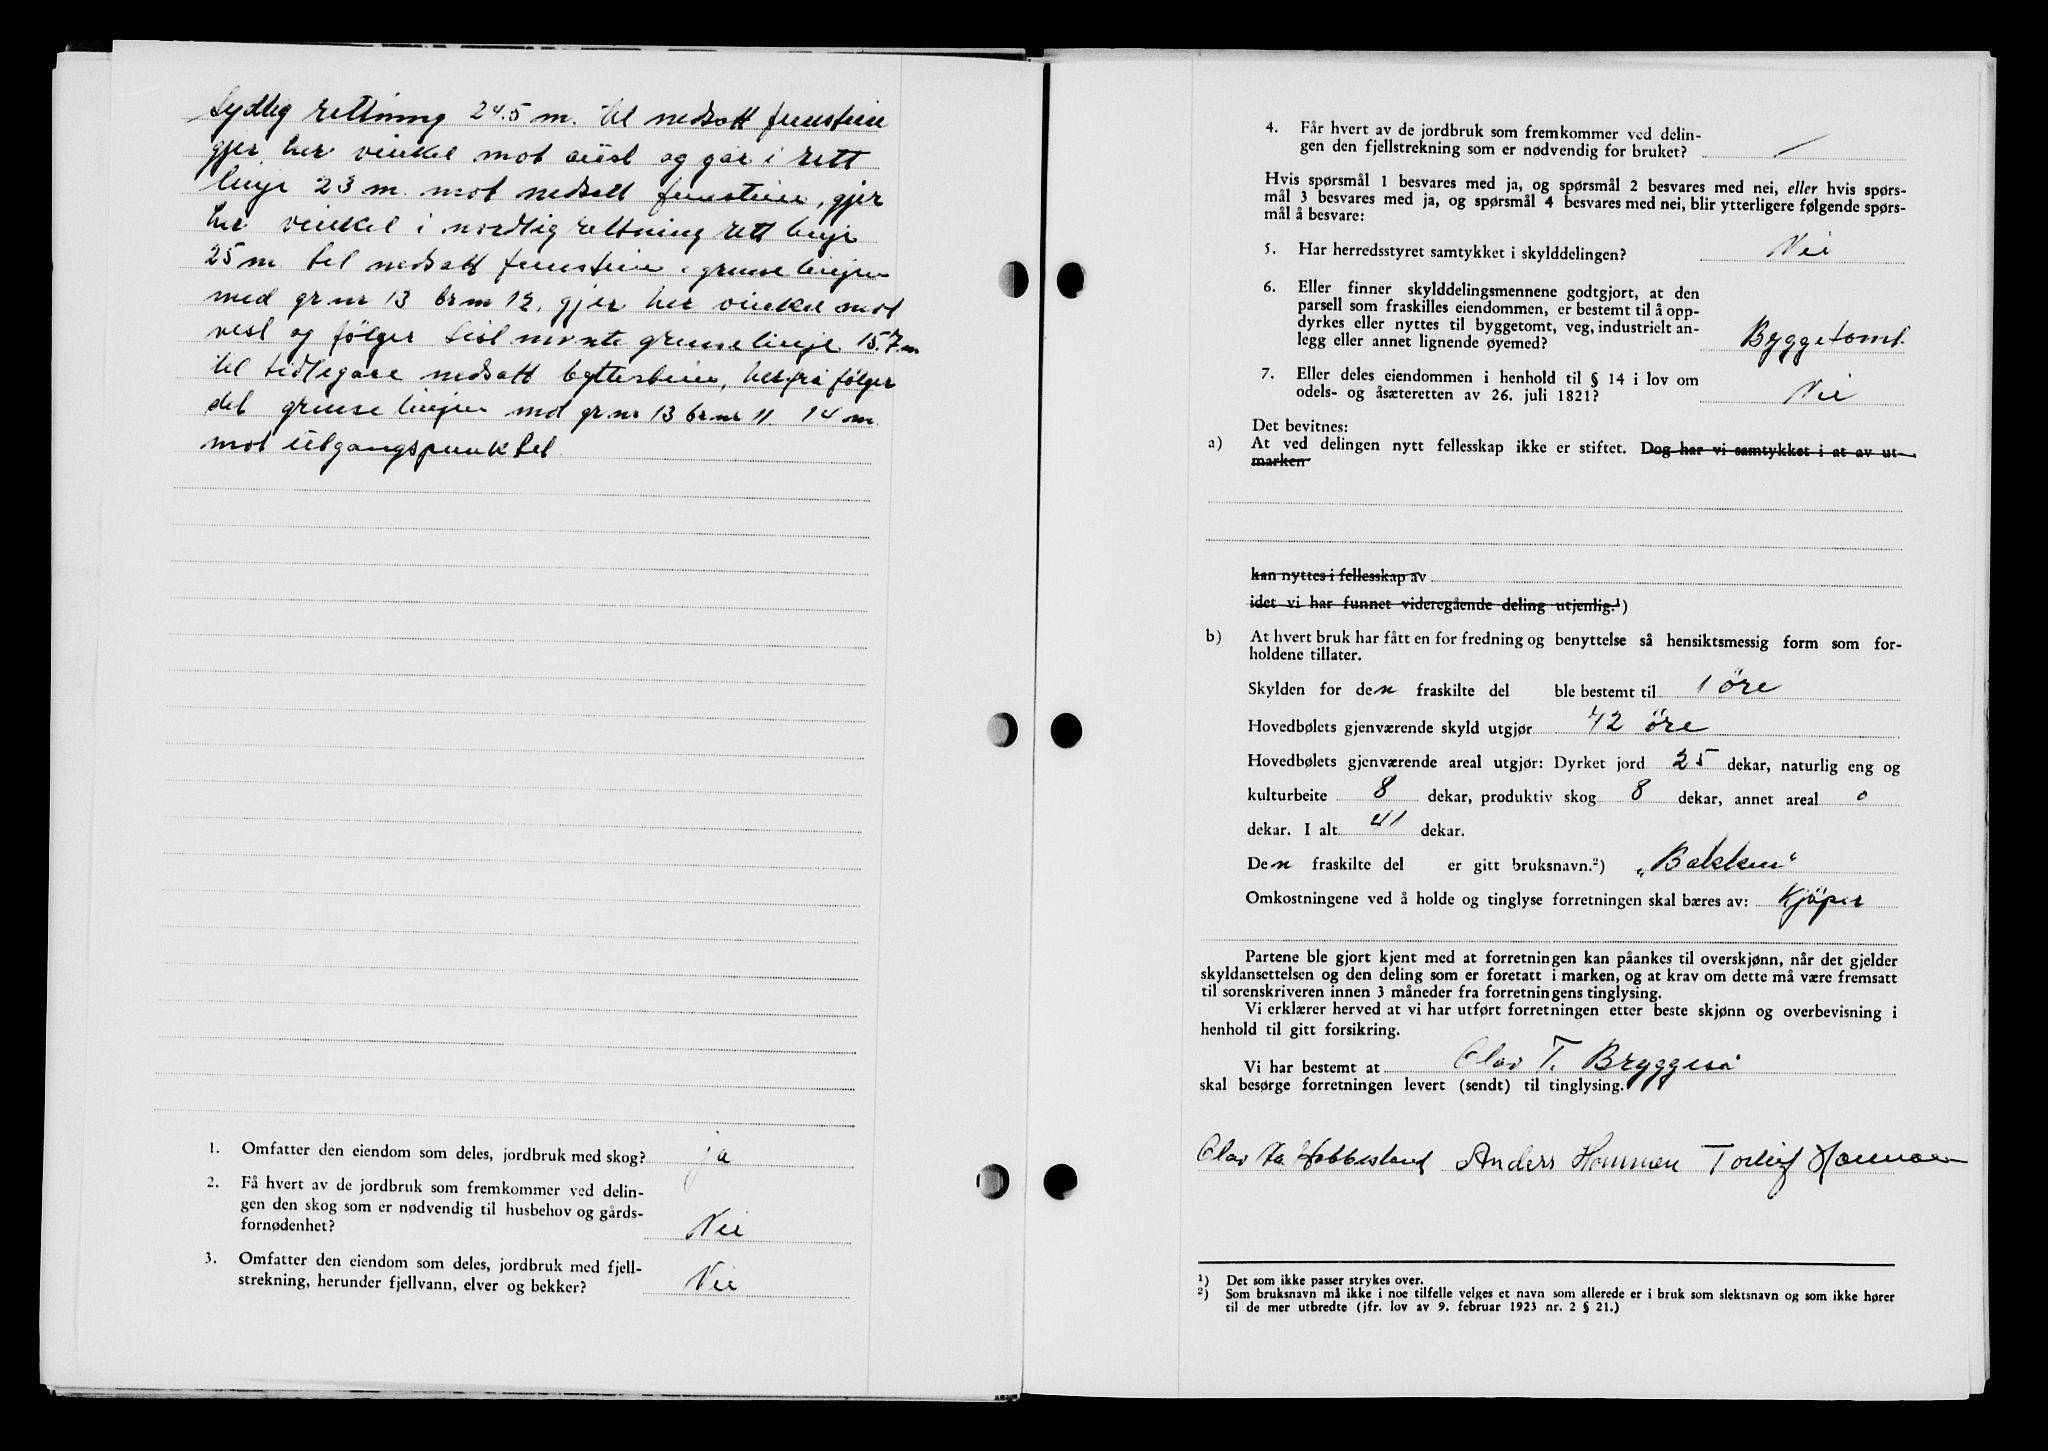 Sydlig rettning 24.5 m. til nedsatt funstein
gjer her vinkel mot aust og går i rett
linje 23 m. mot nedsatt funstein, gjer
her vinkel i nordlig rettning rett linje
25 m til nedsatt funstein i grense linjen
med gr nr 13 br nr 12, gjer her vinkel mot
vest og følger sist nevnte grense linje 15.7 m
til tidligare nedsatt byttestein, herfra følger
det grense linjen mot gr nr 13 br nr 11 14 m
mot utgangspunktet
1. Omfatter den eiendom som deles, jordbruk med skog? ja
2. Få hvert av de jordbruk som fremkommer ved delin-
gen den skog som er nødvendig til husbehov og gårds-
fornødenhet? Nei
3. Omfatter den eiendom som deles, jordbruk med fjell-
strekning, herunder fjellvann, elver og bekker? Nei
4. Får hvert av de jordbruk som fremkommer ved delin-
gen den fjellstrekning som er nødvendig for bruket? /
Hvis spørsmål 1 besvares med ja, og spørsmål 2 besvares med nei, eller hvis spørs-
mål 3 besvares med ja, og spørsmål 4 besvares med nei, blir ytterligere følgende spørs-
mål å besvare:
5. Har herredsstyret samtykket i skylddelingen? Nei
6. Eller finner skylddelingsmennene godtgjort, at den
parsell som fraskilles eiendommen, er bestemt til å opp-
dyrkes eller nyttes til byggetomt, veg, industrielt an-
legg eller annet lignende øyemed? Byggetomt
7. Eller deles eiendommen i henhold til § 14 i lov om
odels- og åsæteretten av 26. juli 1821? Nei
Det bevitnes:
a) At ved delingen nytt fellesskap ikke er stiftet. Dog har vi samtykket i at av ut-
marken
kan nyttes i fellesskap av
idet vi har funnet videregående deling utjenlig.¹)
b) At hvert bruk har fått en for fredning og benyttelse så hensiktsmessig form som for-
holdene tillater.
Skylden for den fraskilte del ble bestemt til 1 öre
Hovedbølets gjenværende skyld utgjør 72 öre
Hovedbølets gjenværende areal utgjør: Dyrket jord 25 dekar, naturlig eng og
kulturbeite 8 dekar, produktiv skog 8 dekar, annet areal 0
dekar. I alt 41 dekar.
Den fraskilte del er gitt bruksnavn.²) „Bakken“
Omkostningene ved å holde og tinglyse forretningen skal bæres av: Kjöper
Partene ble gjort kjent med at forretningen kan påankes til overskjønn, når det gjelder
skyldansettelsen og den deling som er foretatt i marken, og at krav om dette må være fremsatt
til sorenskriveren innen 3 måneder fra forretningens tinglysing.
Vi erklærer herved at vi har utført forretningen etter beste skjønn og overbevisning i
henhold til gitt forsikring.
Vi har bestemt at Olav T. Bryggeså
skal besørge forretningen levert (sendt) til tinglysing.
Olav Ta. Hobbesland Anders Hommen Torleif
¹) Det som ikke passer strykes over.
²) Som bruksnavn må ikke i noe tilfelle velges et navn som allerede er i bruk som slektsnavn og som ikke hører
til de mer utbredte (jfr. lov av 9. februar 1923 nr. 2 § 21.)